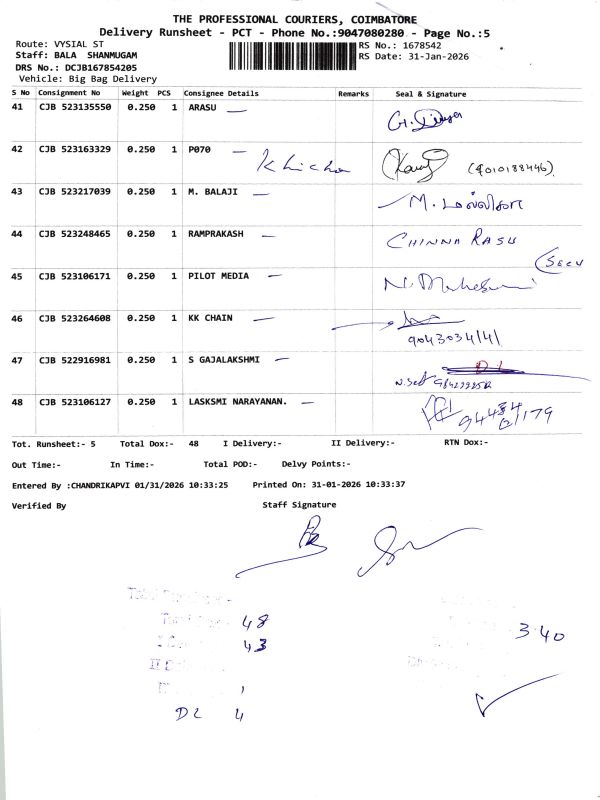 THE PROFESSIONAL COURIERS, COIMBATORE
Delivery Runsheet - PCT - Phone No.:9047080280 - Page No.:5
Route: VYSIAL ST
Staff: BALA SHANMUGAM
DRS No.: DCJB167854205
Vehicle: Big Bag Delivery
RS No.: 1678542
RS Date: 31-Jan-2026
S No Consignment No Weight PCS Consignee Details Remarks Seal & Signature
41 CJB 523135550 0.250 1 ARASU —
42 CJB 523163329 0.250 1 P070 — (9010188446)
43 CJB 523217039 0.250 1 M. BALAJI —
44 CJB 523248465 0.250 1 RAMPRAKASH — CHINNA RASU
45 CJB 523106171 0.250 1 PILOT MEDIA —
46 CJB 523264608 0.250 1 KK CHAIN —
47 CJB 522916981 0.250 1 S GAJALAKSHMI — DL
48 CJB 523106127 0.250 1 LASKSMI NARAYANAN. —
Tot. Runsheet:- 5 Total Dox:- 48 I Delivery:- II Delivery:- RTN Dox:-
Out Time:- In Time:- Total POD:- Delvy Points:-
Entered By :CHANDRIKAPVI 01/31/2026 10:33:25 Printed On: 31-01-2026 10:33:37
Verified By Staff Signature
48
43
3 40
1
DL 4